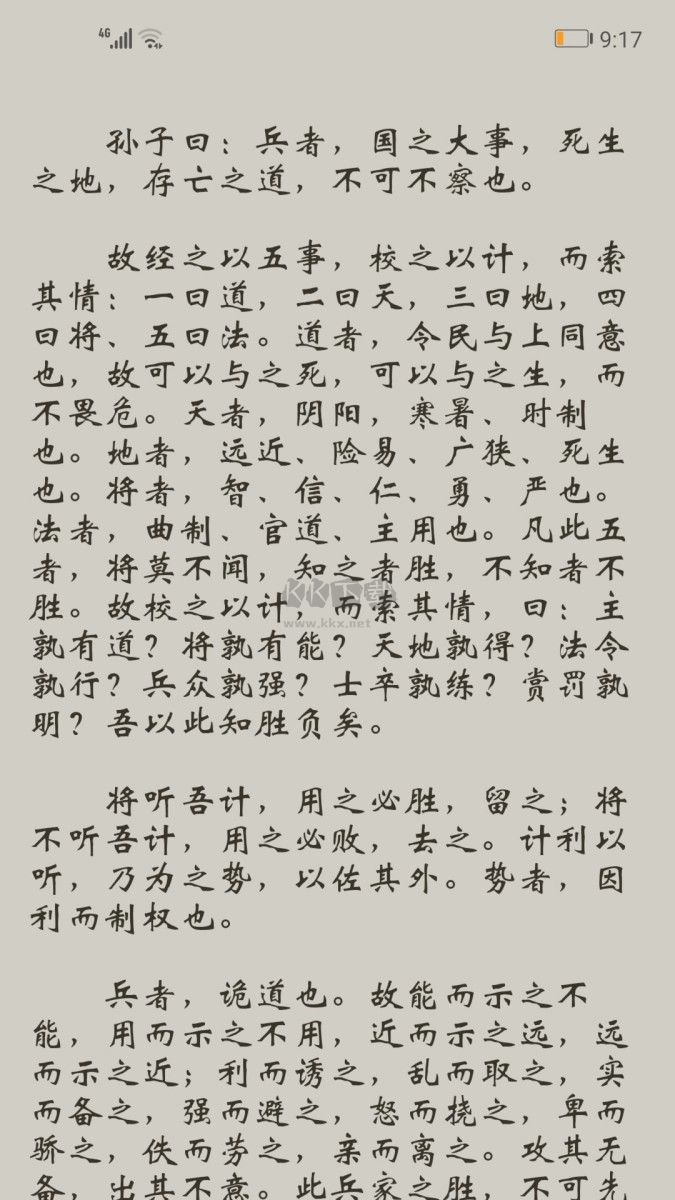 4G
9:17
孙子曰：兵者，国之大事，死生
之地，存亡之道，不可不察也。
故经之以五事，校之以计，而索
其情：一曰道，二曰天，三曰地，四
曰将、五曰法。道者，令民与上同意
也，故可以与之死，可以与之生，而
不畏危。天者，阴阳，寒暑、时制
也。地者，远近、险易、广狭、死生
也。将者，智、信、仁、勇、严也。
法者，曲制、官道、主用也。凡此五
者，将莫不闻，知之者胜，不知者不
胜。故校之以计，而索其情，曰：主
孰有道？将孰有能？天地孰得？法令
孰行？兵众孰强？士卒孰练？赏罚孰
明？吾以此知胜负矣。
KK下载
www.kkx.net
将听吾计，用之必胜，留之；将
不听吾计，用之必败，去之。计利以
听，乃为之势，以佐其外。势者，因
利而制权也。
兵者，诡道也。故能而示之不
能，用而示之不用，近而示之远，远
而示之近；利而诱之，乱而取之，实
而备之，强而避之，怒而挠之，卑而
骄之，佚而劳之，亲而离之。攻其无
备，出其不意。此兵家之胜，不可先